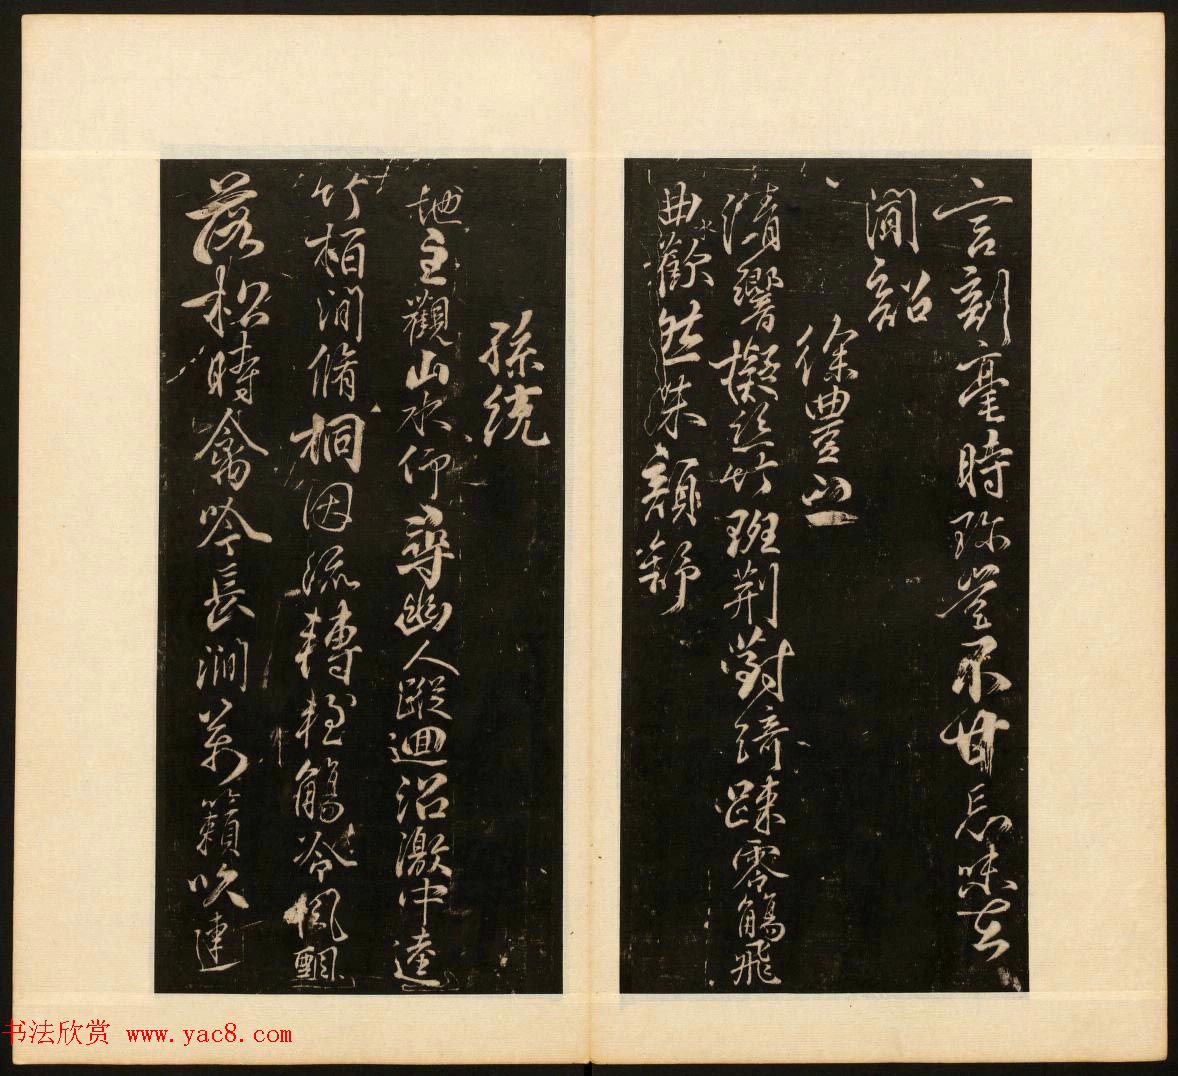 言剖毫時珎豈不甘忘味在
聞韶
徐豐之
清響擬絲竹班荊對綺疎零觴飛
曲歡然朱顏舒
孫統
地主觀山水仰尋幽人蹤迴沼激中逵
竹栢間脩桐因流轉輕觴冷風飄
落松時禽吟長澗萬籟吹連
书法欣赏 www.yac8.com